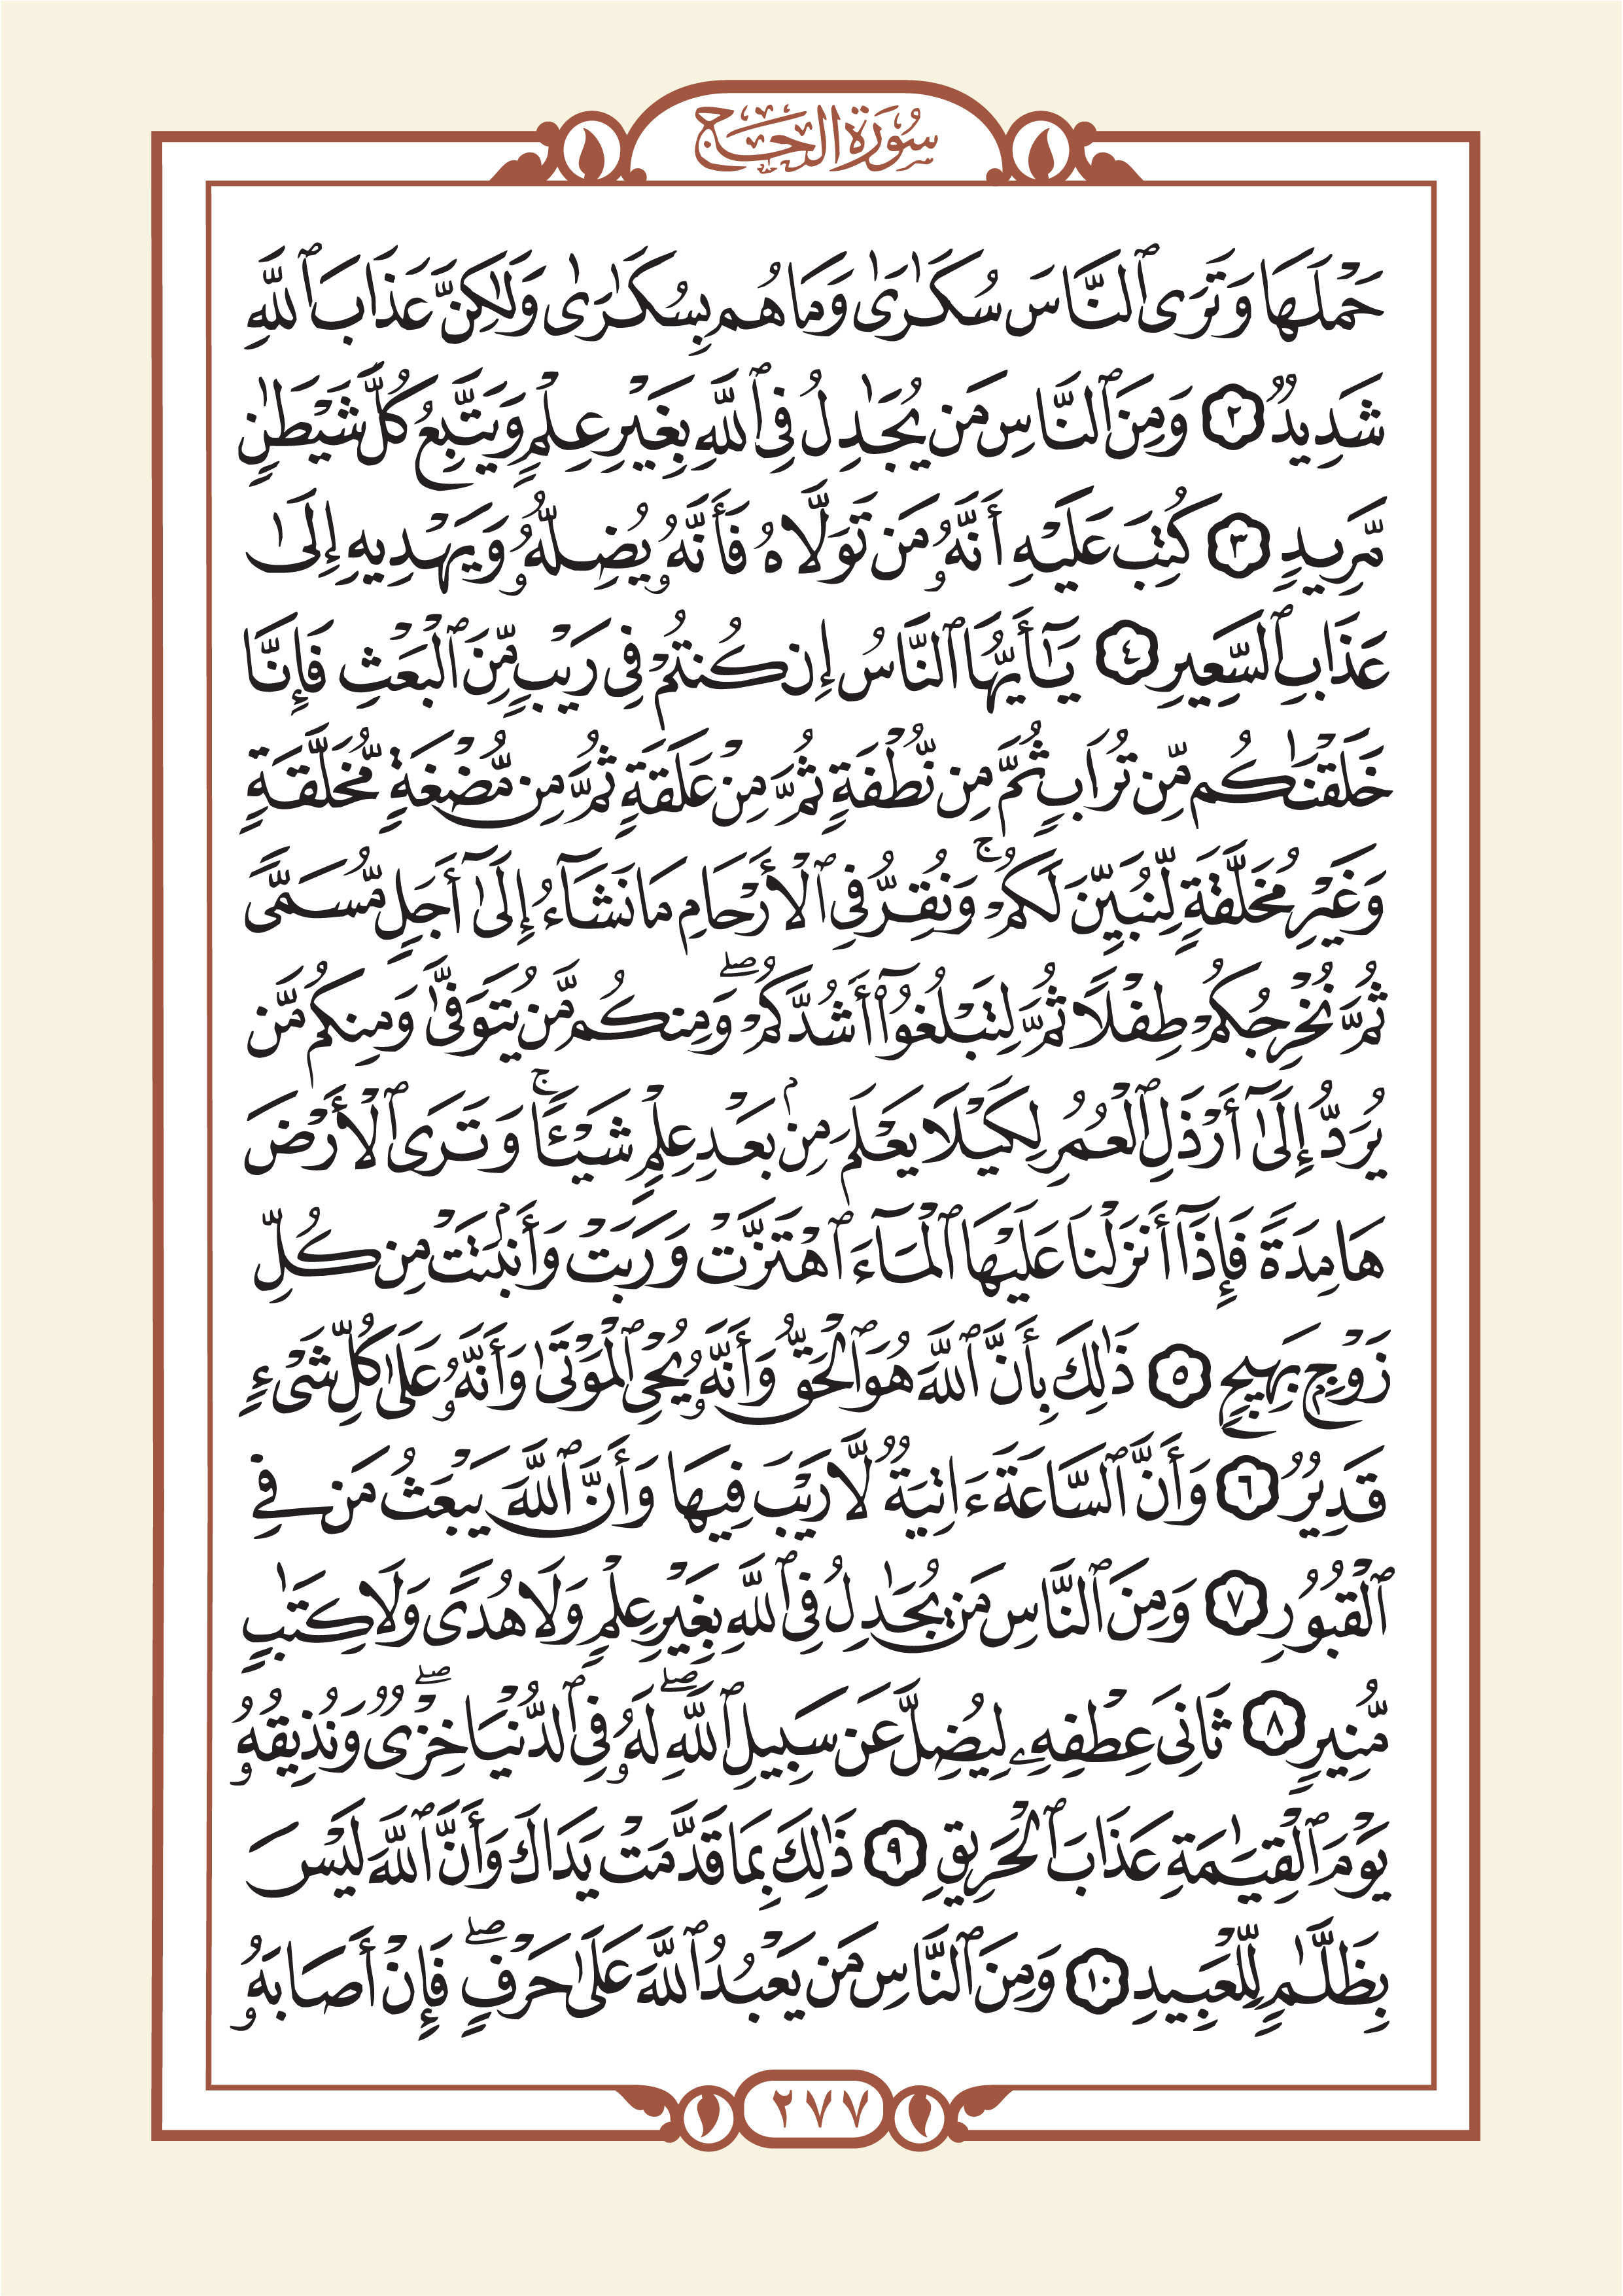 سُورَةُ الحَجّ
حَمۡلَهَا وَتَرَى ٱلنَّاسَ سُكَٰرَىٰ وَمَا هُم بِسُكَٰرَىٰ وَلَٰكِنَّ عَذَابَ ٱللَّهِ
شَدِيدٞ ٢ وَمِنَ ٱلنَّاسِ مَن يُجَٰدِلُ فِي ٱللَّهِ بِغَيۡرِ عِلۡمٖ وَيَتَّبِعُ كُلَّ شَيۡطَٰنٖ
مَّرِيدٖ ٣ كُتِبَ عَلَيۡهِ أَنَّهُۥ مَن تَوَلَّاهُ فَأَنَّهُۥ يُضِلُّهُۥ وَيَهۡدِيهِ إِلَىٰ
عَذَابِ ٱلسَّعِيرِ ٤ يَٰٓأَيُّهَا ٱلنَّاسُ إِن كُنتُمۡ فِي رَيۡبٖ مِّنَ ٱلۡبَعۡثِ فَإِنَّا
خَلَقۡنَٰكُم مِّن تُرَابٖ ثُمَّ مِن نُّطۡفَةٖ ثُمَّ مِنۡ عَلَقَةٖ ثُمَّ مِن مُّضۡغَةٖ مُّخَلَّقَةٖ
وَغَيۡرِ مُخَلَّقَةٖ لِّنُبَيِّنَ لَكُمۡۚ وَنُقِرُّ فِي ٱلۡأَرۡحَامِ مَا نَشَآءُ إِلَىٰٓ أَجَلٖ مُّسَمّٗى
ثُمَّ نُخۡرِجُكُمۡ طِفۡلٗا ثُمَّ لِتَبۡلُغُوٓاْ أَشُدَّكُمۡۖ وَمِنكُم مَّن يُتَوَفَّىٰ وَمِنكُم مَّن
يُرَدُّ إِلَىٰٓ أَرۡذَلِ ٱلۡعُمُرِ لِكَيۡلَا يَعۡلَمَ مِنۢ بَعۡدِ عِلۡمٖ شَيۡـٔٗاۚ وَتَرَى ٱلۡأَرۡضَ
هَامِدَةٗ فَإِذَآ أَنزَلۡنَا عَلَيۡهَا ٱلۡمَآءَ ٱهۡتَزَّتۡ وَرَبَتۡ وَأَنۢبَتَتۡ مِن كُلِّ
زَوۡجِۭ بَهِيجٖ ٥ ذَٰلِكَ بِأَنَّ ٱللَّهَ هُوَ ٱلۡحَقُّ وَأَنَّهُۥ يُحۡيِ ٱلۡمَوۡتَىٰ وَأَنَّهُۥ عَلَىٰ كُلِّ شَيۡءٖ
قَدِيرٞ ٦ وَأَنَّ ٱلسَّاعَةَ ءَاتِيَةٞ لَّا رَيۡبَ فِيهَا وَأَنَّ ٱللَّهَ يَبۡعَثُ مَن فِي
ٱلۡقُبُورِ ٧ وَمِنَ ٱلنَّاسِ مَن يُجَٰدِلُ فِي ٱللَّهِ بِغَيۡرِ عِلۡمٖ وَلَا هُدٗى وَلَا كِتَٰبٖ
مُّنِيرٖ ٨ ثَانِيَ عِطۡفِهِۦ لِيُضِلَّ عَن سَبِيلِ ٱللَّهِۖ لَهُۥ فِي ٱلدُّنۡيَا خِزۡيٞۖ وَنُذِيقُهُۥ
يَوۡمَ ٱلۡقِيَٰمَةِ عَذَابَ ٱلۡحَرِيقِ ٩ ذَٰلِكَ بِمَا قَدَّمَتۡ يَدَاكَ وَأَنَّ ٱللَّهَ لَيۡسَ
بِظَلَّٰمٖ لِّلۡعَبِيدِ ١٠ وَمِنَ ٱلنَّاسِ مَن يَعۡبُدُ ٱللَّهَ عَلَىٰ حَرۡفٖۖ فَإِنۡ أَصَابَهُۥ
٢٧٧